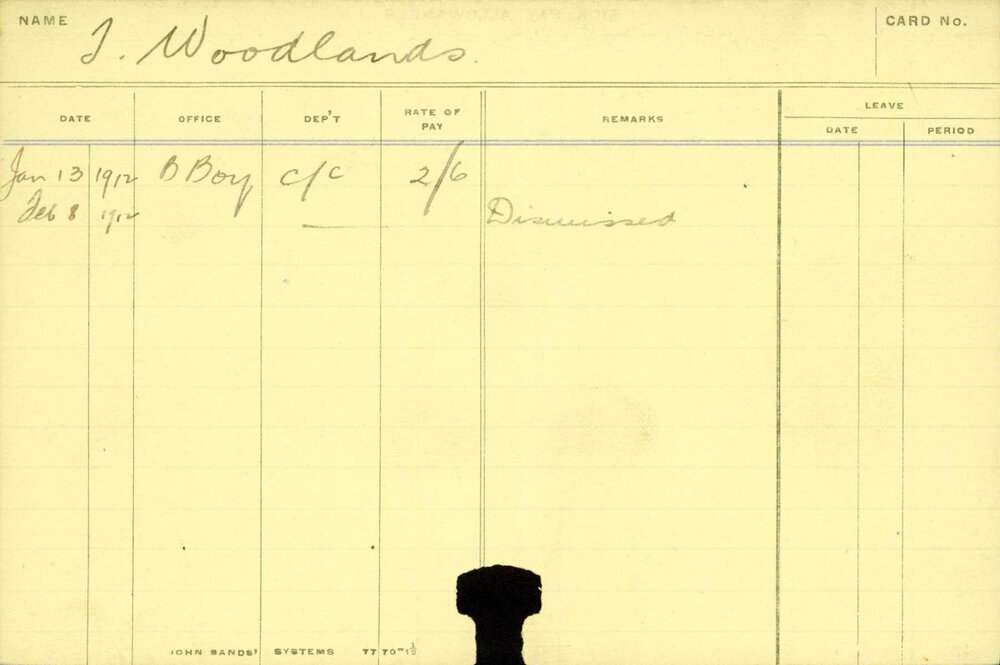 NAME J. Woodlands. CARD No.
DATE OFFICE DEP'T RATE OF PAY REMARKS LEAVE
DATE PERIOD
Jan 13 1912 B Boy c/c 2/6
Feb 8 1912 — Dismissed
JOHN SANDS' SYSTEMS